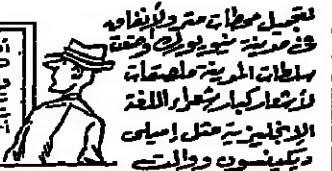 لتجميل محطات مترو الأنفاق
فى مدينة نيويورك وضعت
سلطات المدينة ملصقات
لأشعار كبار شعراء اللغة
الإنجليزية مثل إميلى
ديكينسون ووالت